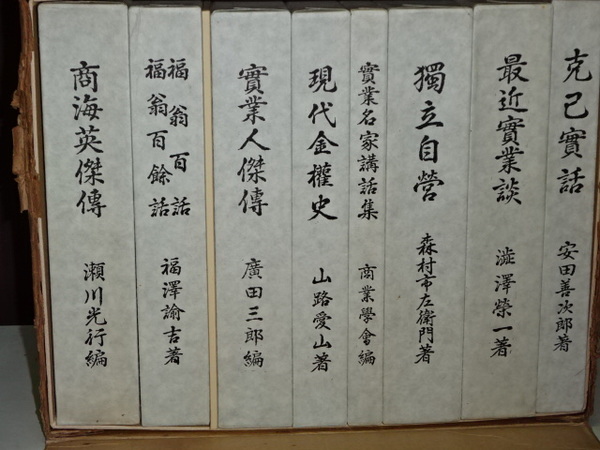 克己實話
安田善次郎著
最近實業談
澁澤榮一著
獨立自營
森村市左衛門著
實業名家講話集
商業學會編
現代金權史
山路愛山著
實業人傑傳
廣田三郎編
福翁百話
福翁百餘話
福澤諭吉著
商海英傑傳
瀬川光行編